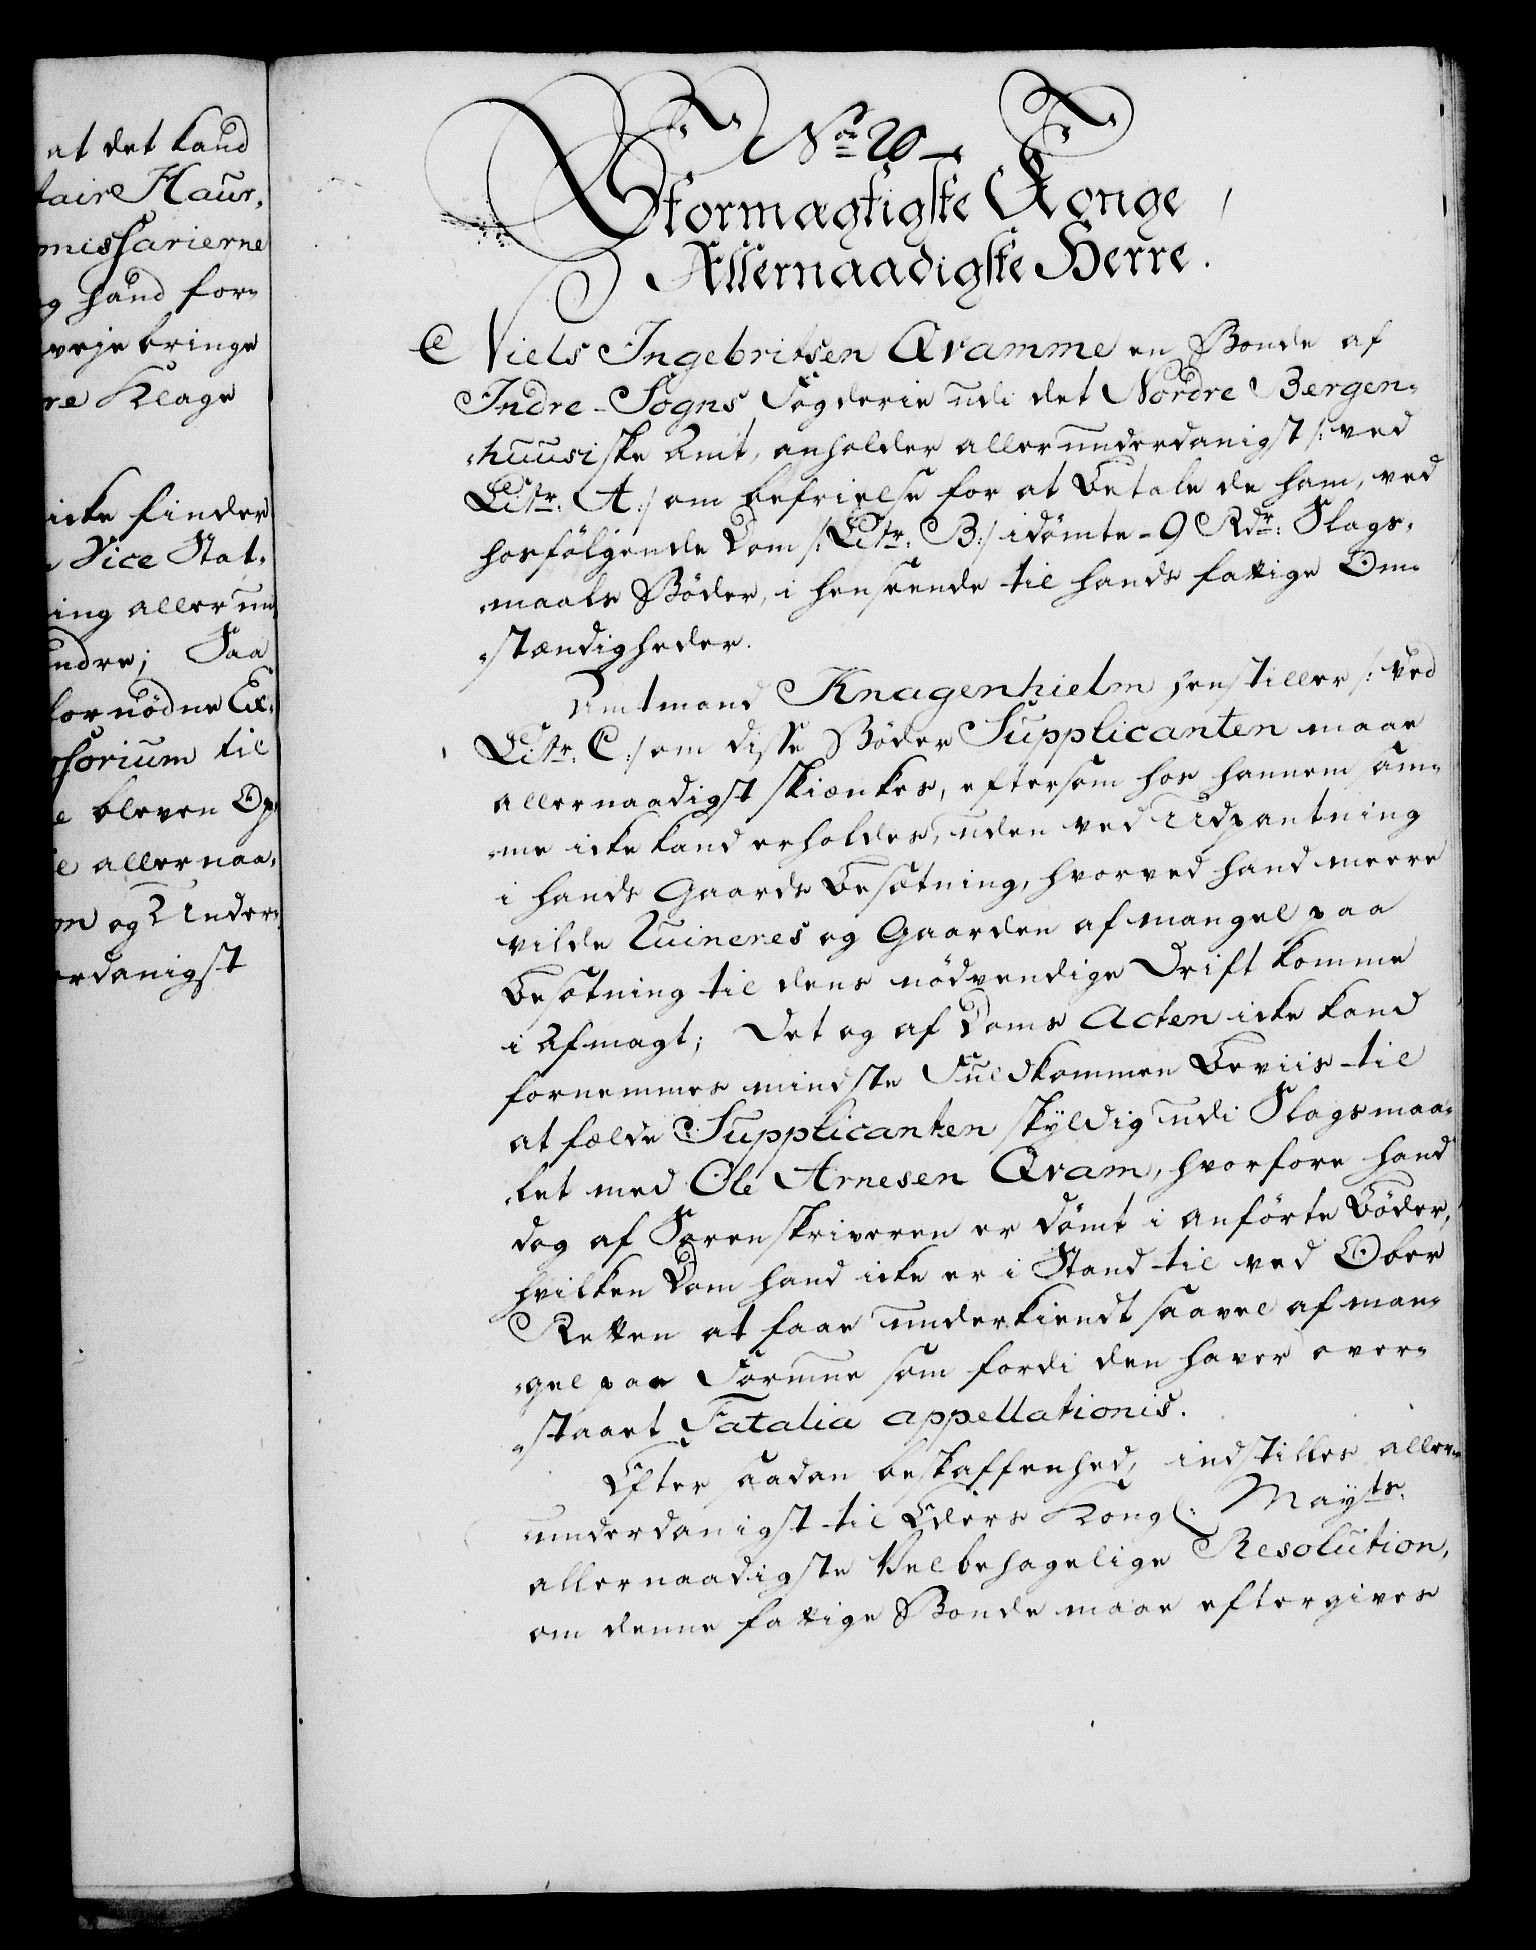 at det kand
taire Haur,
missarierne
g hand for-
veje bringe
re Klage
icke finder
Vice Stat,
ing aller un
ndre; Saa
fornødne Ex,
ssorium til
e bleven Op
e allernaa,
og Under,
rdanigst
No 20
Stormægtigste Konge,
Allernaadigste Herre.
Niels Ingebritsen Qvamme en Bonde af
Indre-Sogns Fogderie udi det Nordre Bergen-
huusiske Amt, anholder allerunderdanigst /: ved
Litr: A :/ om befrielse for at betale de ham, ved
hosfølgende Dom /: Litr: B :/ idømte 9 Rdr: Slags-
maals Bøder, i henseende til hands fattige Om-
stændigheder.
Amtmand Knagenhielm henstiller /: ved
Litr: C :/ om disse Bøder Supplicanten maae
allernaadigst skiænkes, eftersom hos hannem sam-
me icke kand erholdes, uden ved Udpantning
i hands Gaards Besætning, hvorved hand meere
vilde Ruineres og Gaarden af mangel paa
Besætning til dens nødvendige Drift komme
i Afmagt; Det og af Doms Acten icke kand
fornemmes mindste Fuldkommen Beviis til
at fælde Supplicanten skyldig udi Slagsmaa-
let med Ole Arnesen Qvam, hvorfore hand
dog af Sorenskriveren er dømt i anførte Bøder,
hvilken Dom hand icke er i Stand til ved Ober
Retten at faae underkiendt saavel af man-
gel paa Formue som fordi den haver over-
staaet Fatalia appellationis.
Efter saadan beskaffenhed, indstilles aller-
underdanigst til Eders Kongl: Mayts:
allernaadigste Velbehagelige Resolution,
om denne fattige Bonde maae eftergives